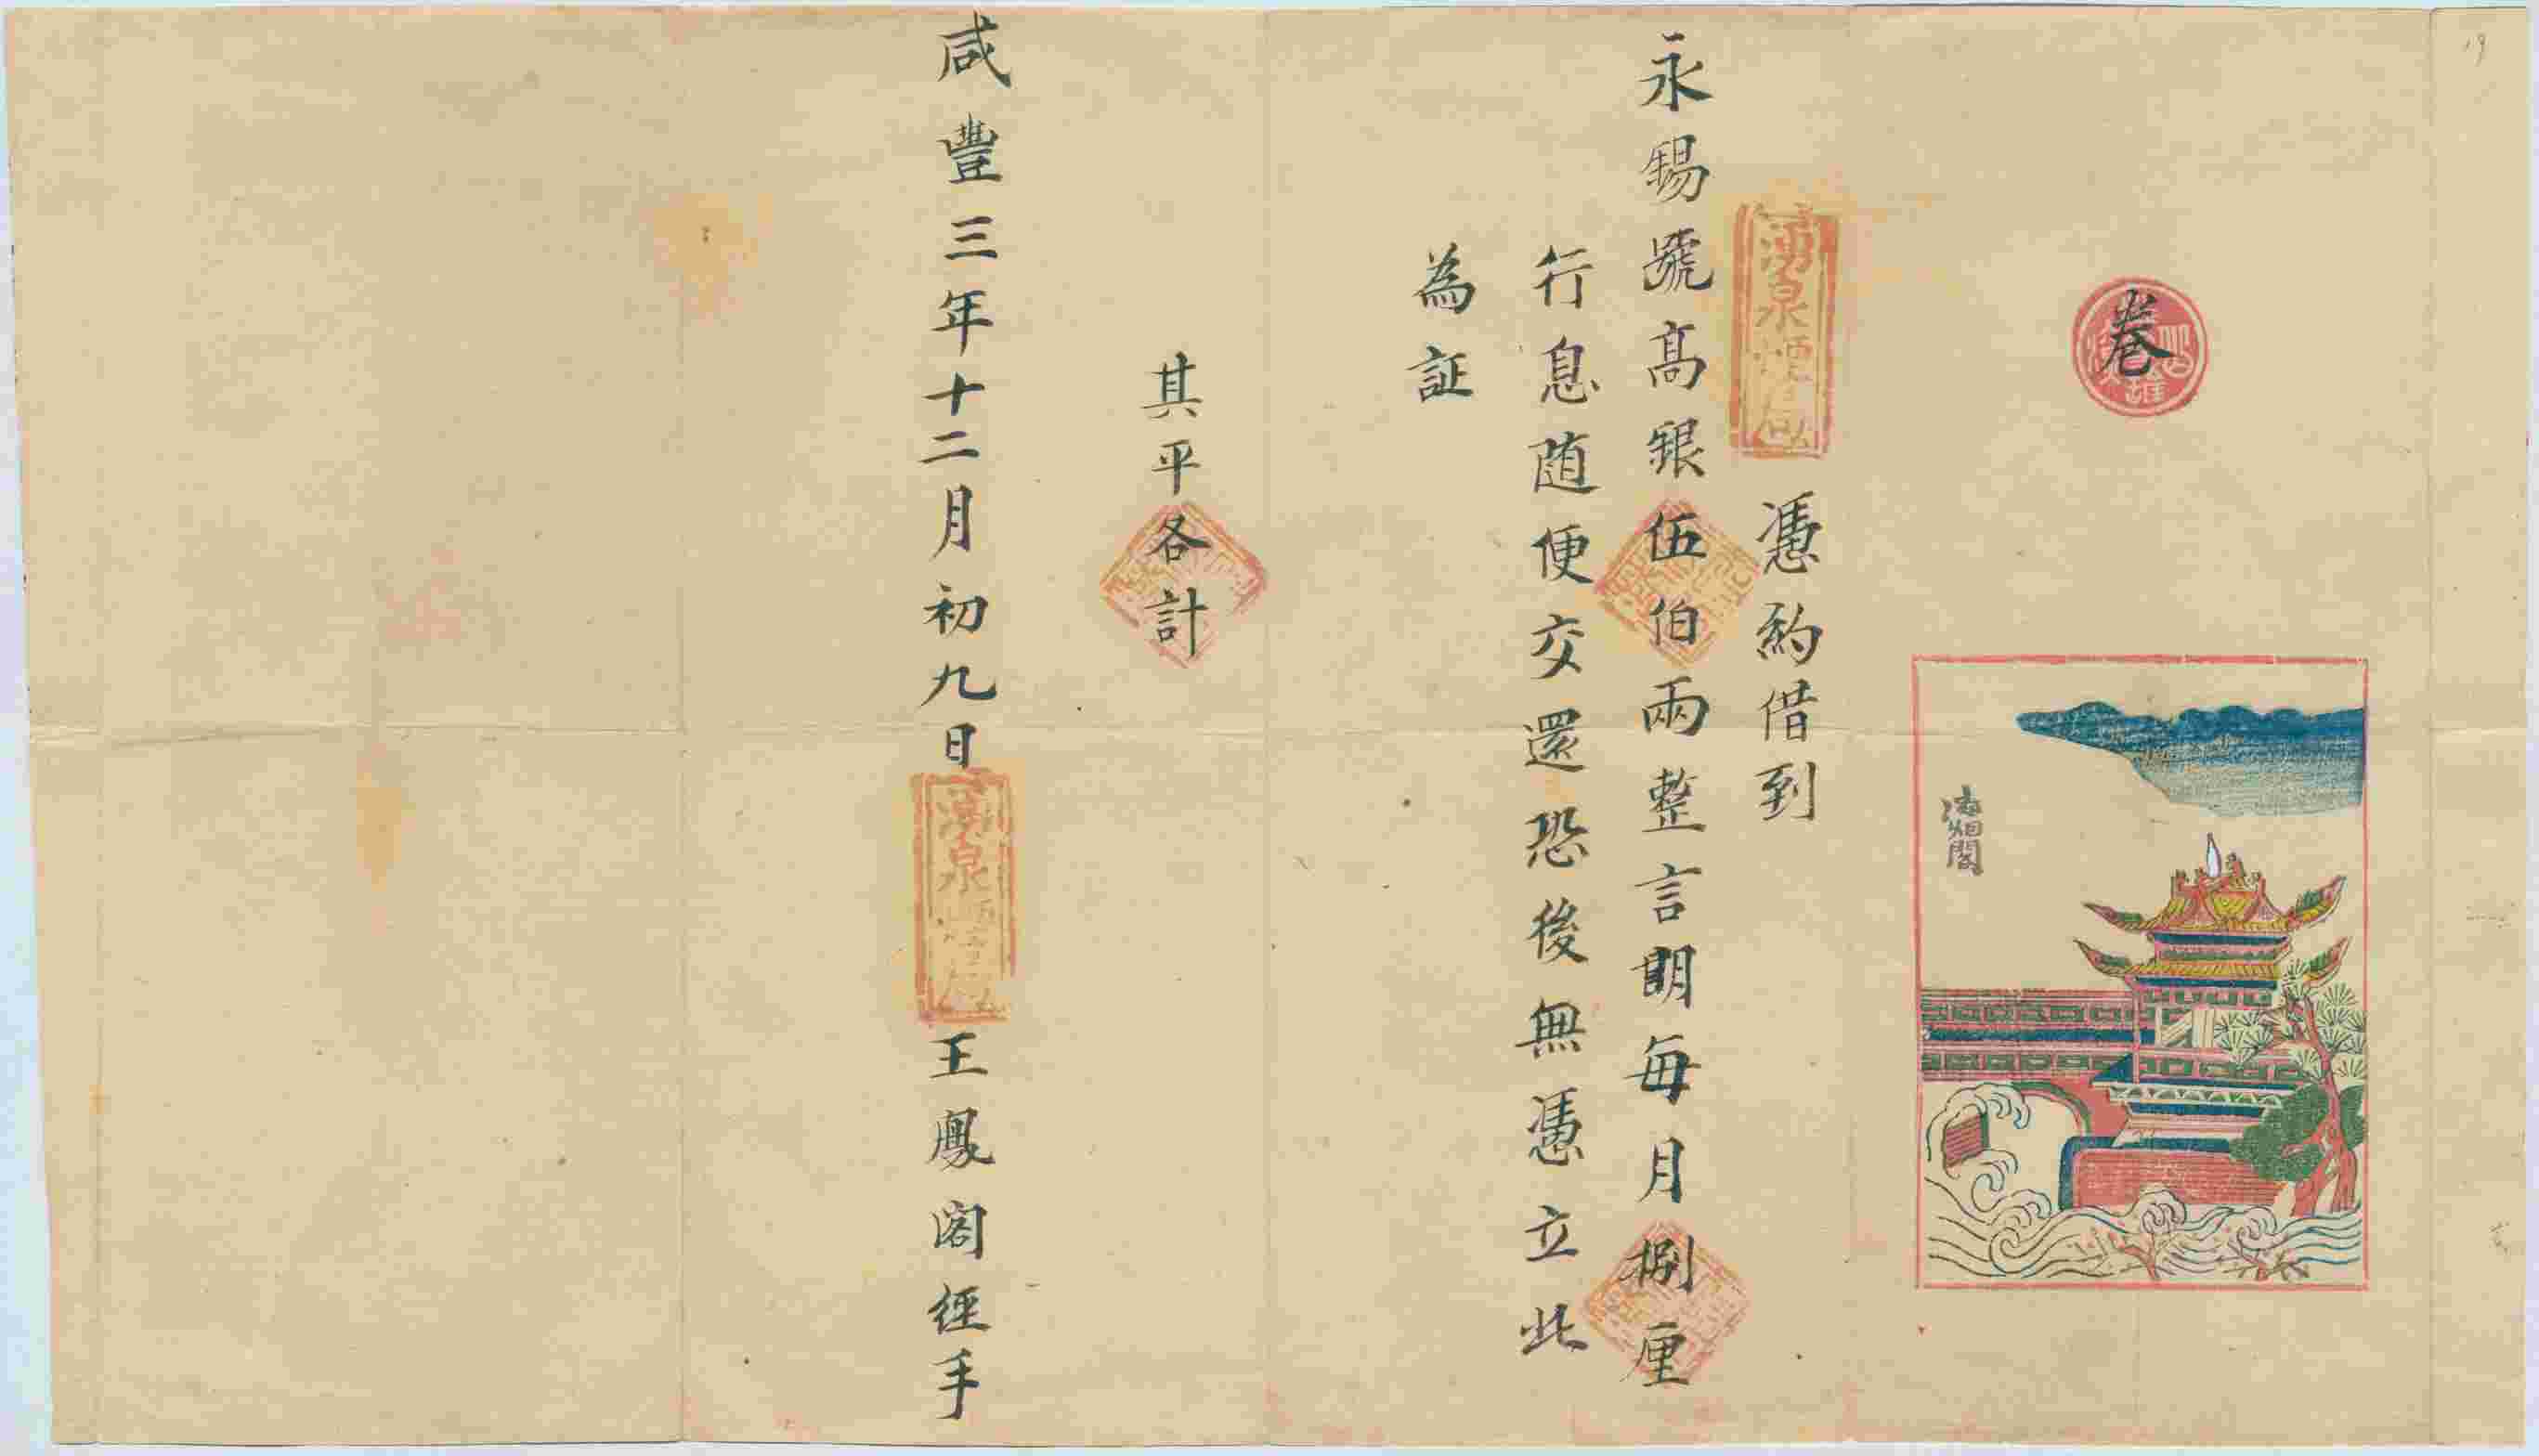 卷
海烟閣
憑約借到
永錫號高銀伍伯兩整言明每月捌厘
行息随便交還恐後無憑立此
為証
其平各計
咸豐三年十二月初九日
湧泉
王鳳閣経手
19